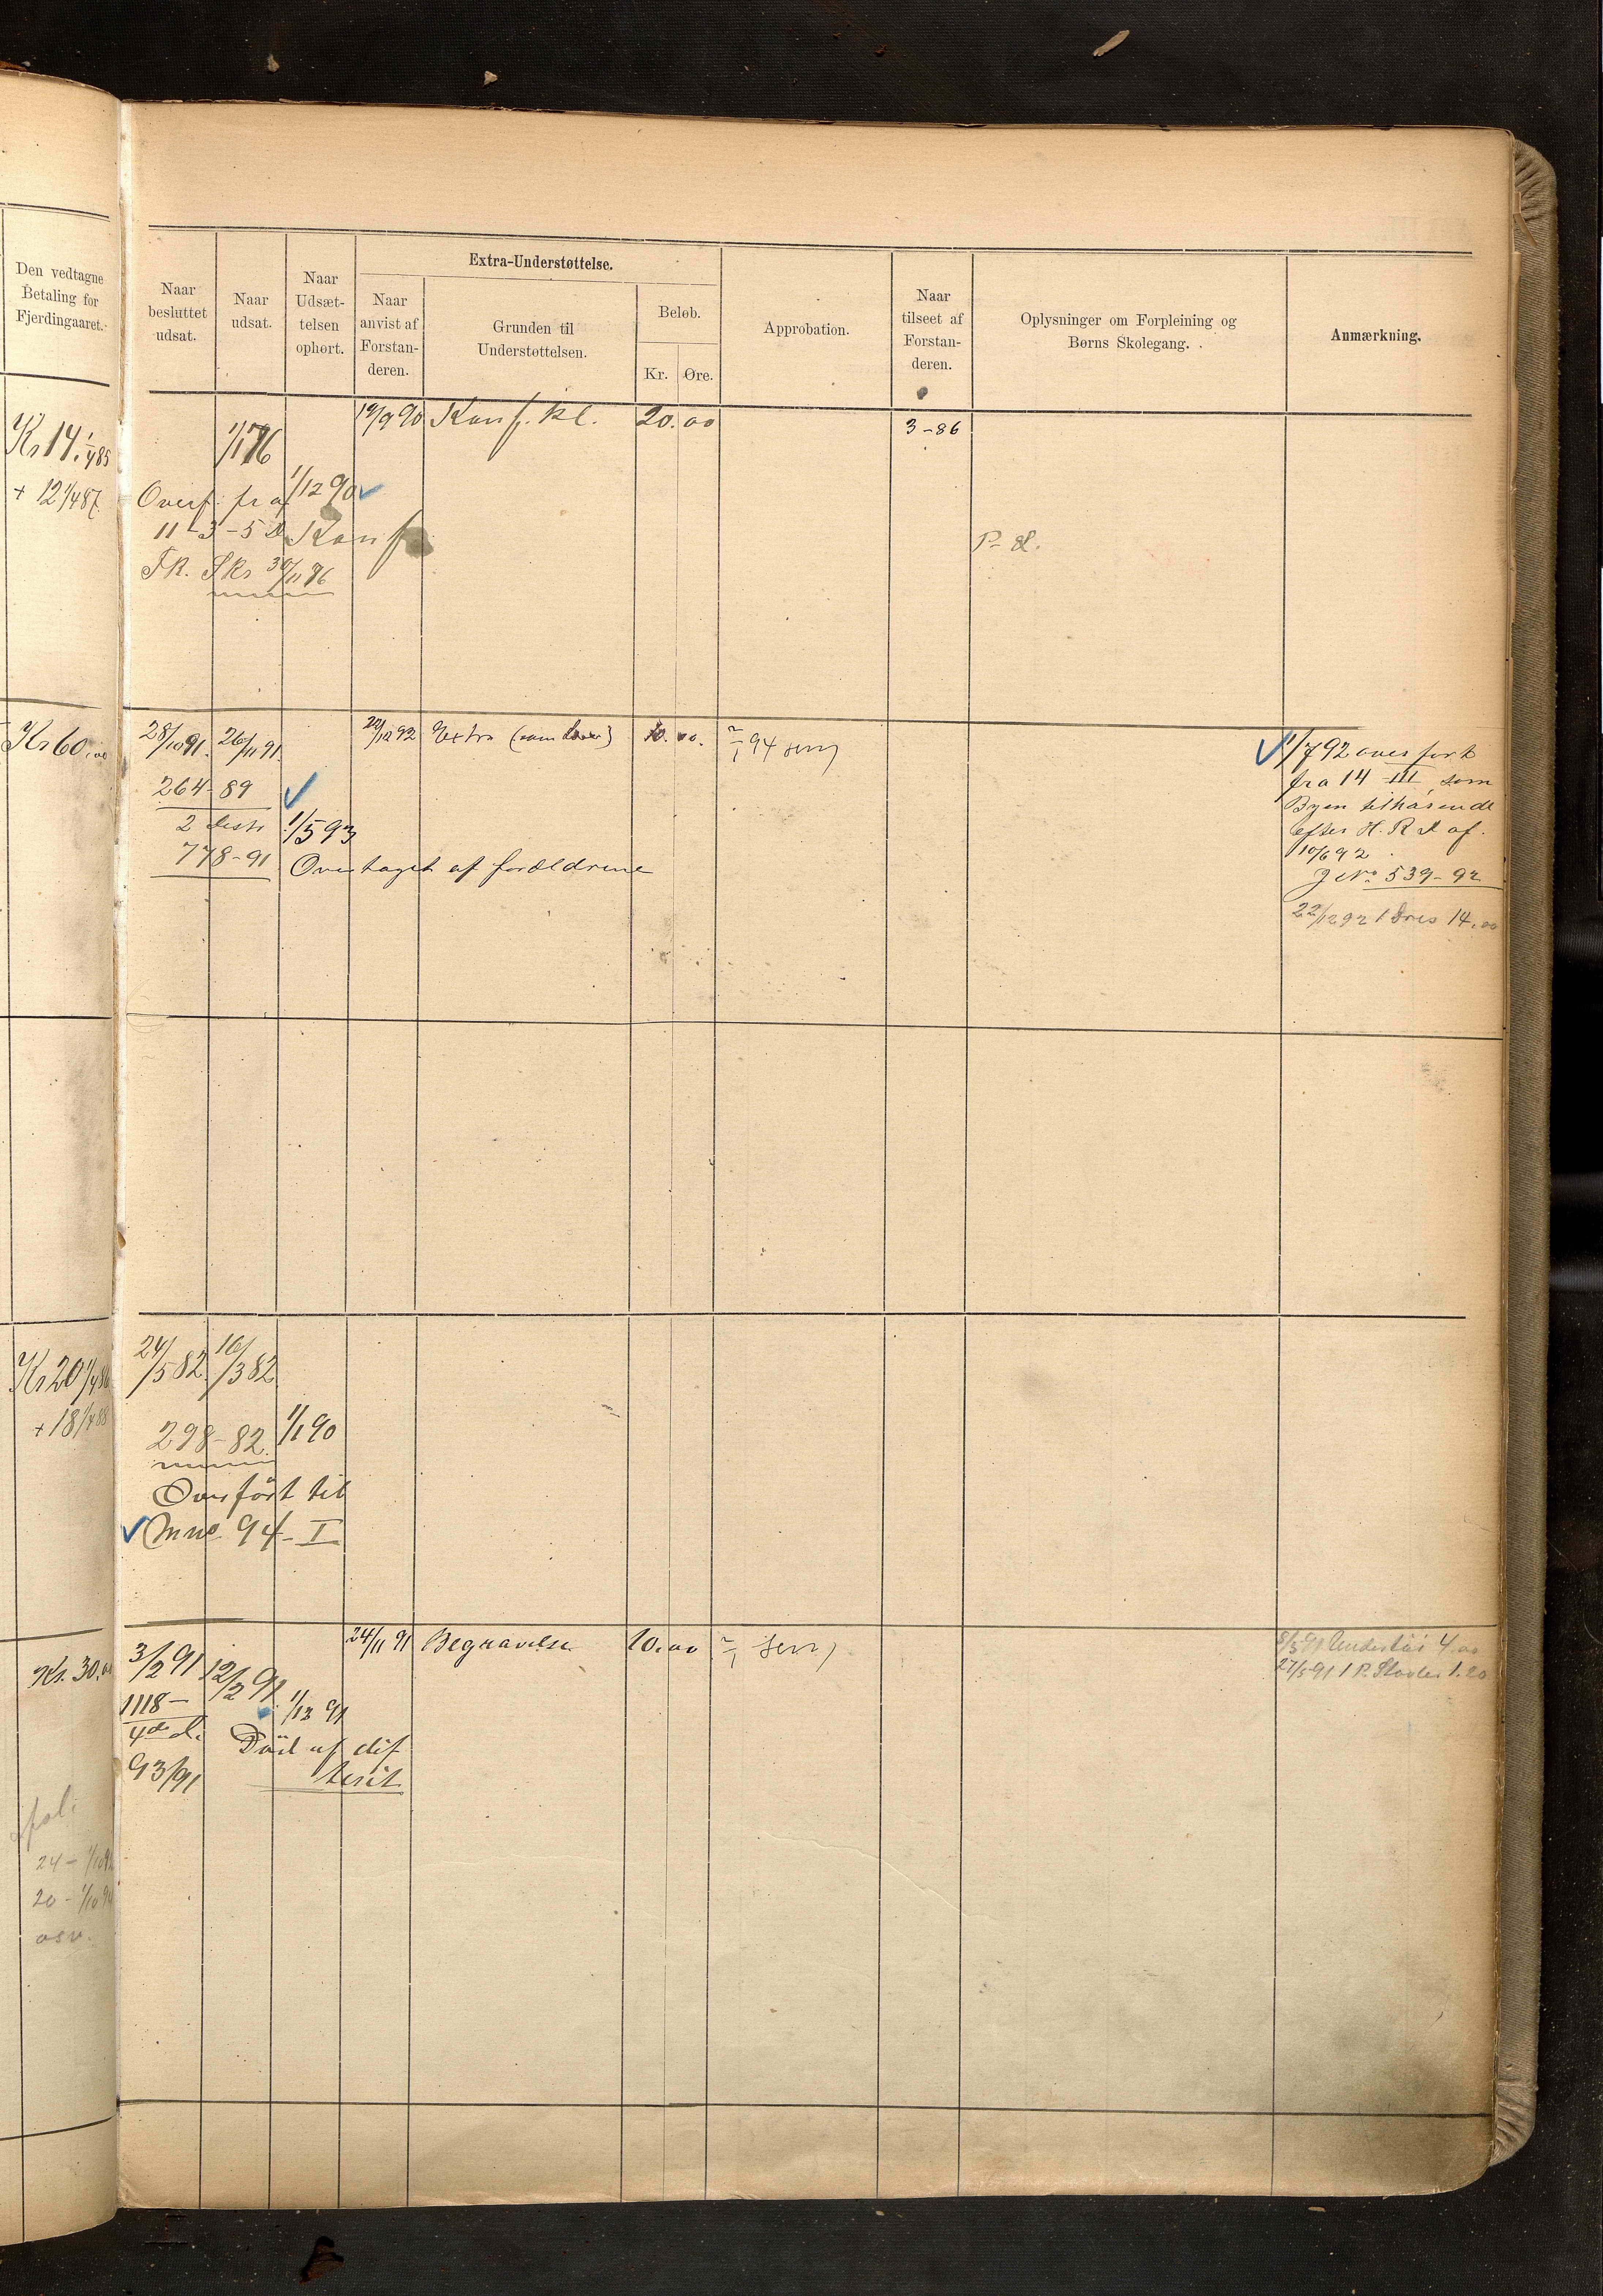 Den vedtagne
Betaling for
Fjerdingaaret.
Naar
besluttet
udsat.
Naar
udsat.
Naar
Udsæt-
telsen
ophørt.
Extra-Understøttelse.
Naar
anvist af
Forstan-
deren.
Grunden til
Understøttelsen.
Beløb.
Kr. Øre.
Approbation.
Naar
tilseet af
Forstan-
deren.
Oplysninger om Forpleining og
Børns Skolegang.
Anmærkning.
Kr 14. 1/4 85
+ 12 1/4 87
1/1 76
19/9 90 Konf. kl. 20.00
3-86
1/12 90
Overf. fra
11-3-5 Konf
F.K. Skr 30/11 76
Kr 60.00
28/10 91. 26/11 91
22/12 92 Extra 10.00.
2/1 94
264-89
2
778-91
1/5 93
Overtaget af forældrene
1/7 92 overført
fra 14 III som
Byen tilhørende
efter H. R. D af
10/6 92
J No 539-92
22/12 92 1 Dres 14.00
Kr 20 1/4 86
+ 18 1/4 88
24/5 82 16/3 82
298-82 1/1 90
Overført til
Mno 94-I
Kr. 30.00
3/2 91 12/2 91
24/11 91 Begravelse 10.00
1118-
93/91
1/12 91
Död af dif
terit
8/5 91 4.00
27/5 91 1 P. 1.20
24 - 1/10 92
20 - 1/10 94
osv.